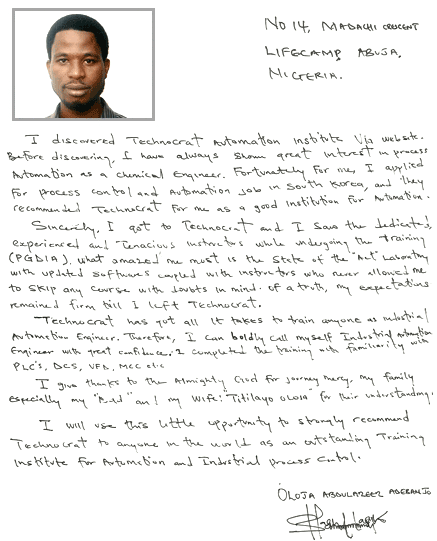 No 14, MADACHI CRESCENT
LIFECAMP, ABUJA,
NIGERIA.
I discovered Technocrat Automation Institute Via website.
Before discovering, I have always shown great interest in process
Automation as a chemical Engineer. Fortunately for me, I applied
for process control and Automation job in South Korea, and they
recommended Technocrat for me as a good institution for Automation.
Sincerely, I got to Technocrat and I saw the dedicated,
experienced and Tenacious instructors while undergoing the training
(PGDIA), what amazed me most is the state of the "Art" Laboratory
with updated softwares coupled with instructors who never allowed me
to skip any course with doubts in mind. Of a truth, my expectations
remained firm till I left Technocrat.
Technocrat has got all it takes to train anyone as industrial
Automation Engineer. Therefore, I can boldly call myself Industrial automation
Engineer with great confidence. I completed the training with familiarity with
PLC's, DCS, VFD, MCC etc
I give thanks to the Almighty God for journey mercy, my family
especially my "Dad" and my Wife: "Titilayo Oloja" for their understanding.
I will use this little opportunity to strongly recommend
Technocrat to anyone in the world as an outstanding Training
Institute for Automation and Industrial process control.
OLOJA ABDULAZEEZ ADEBANJO